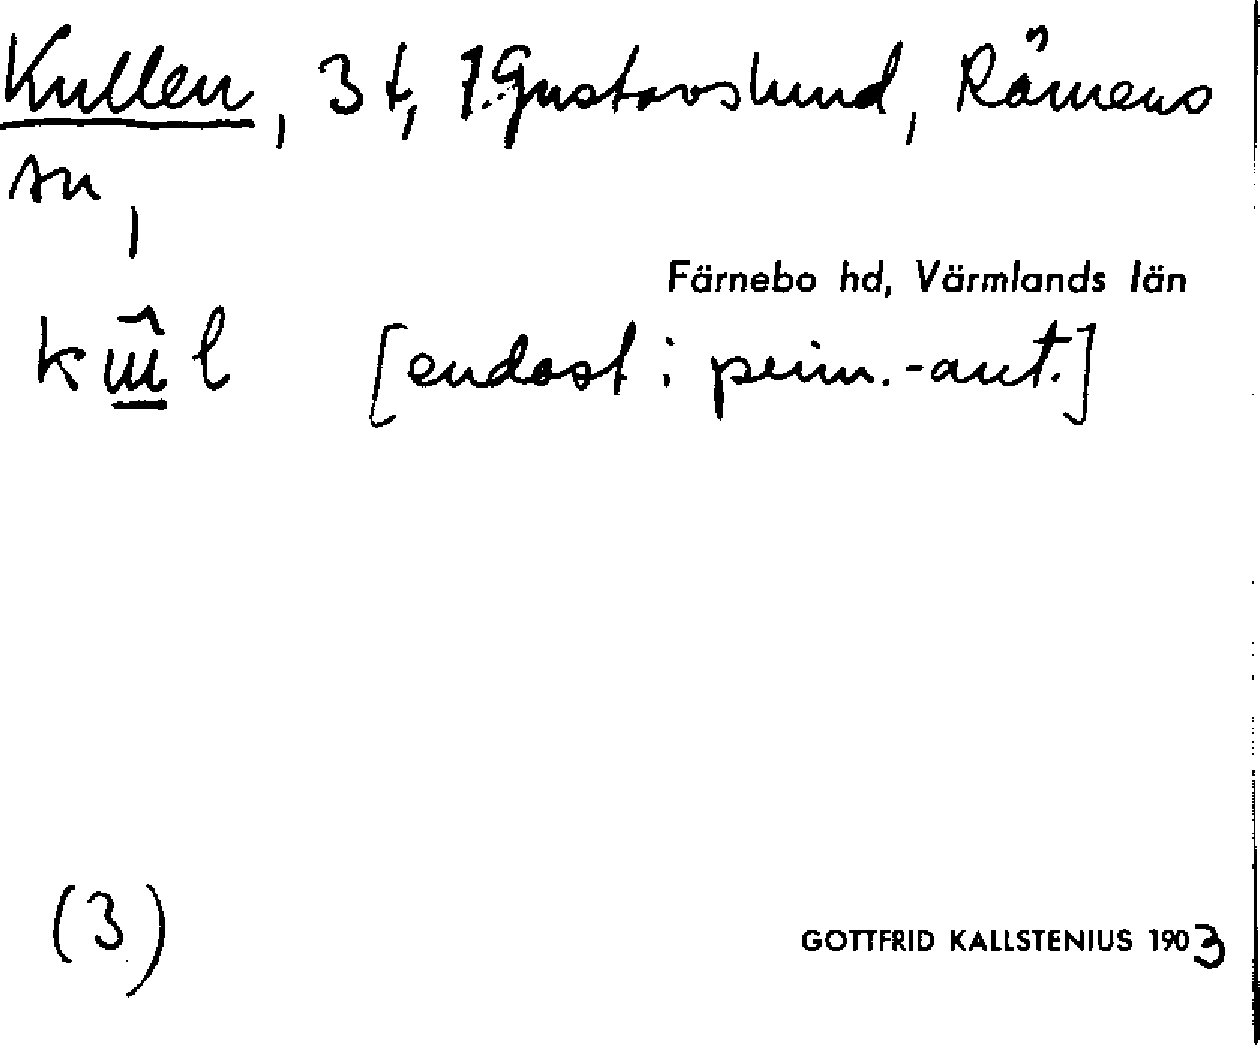 Kullen, 3 t, 1. Gustavslund, Rämens
sn,
Färnebo hd, Värmlands län
[endast i prim.-ant.]
(3)
GOTTFRID KALLSTENIUS 1903